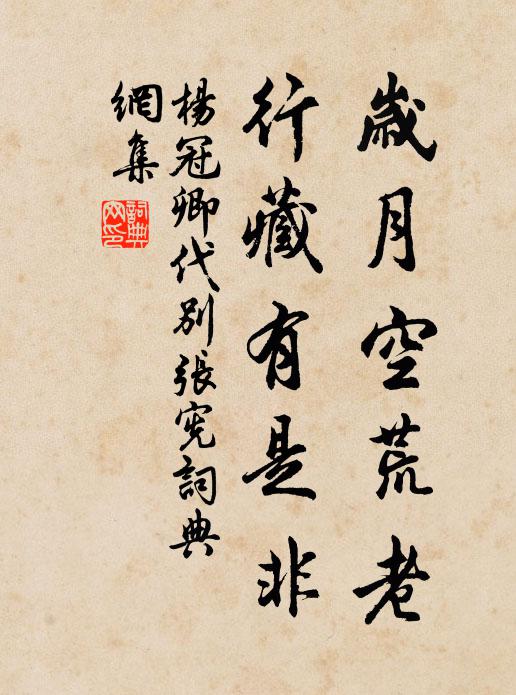 歲月空荒老
行藏有是非
楊冠卿代別張宪詞典
網集
詞典网印